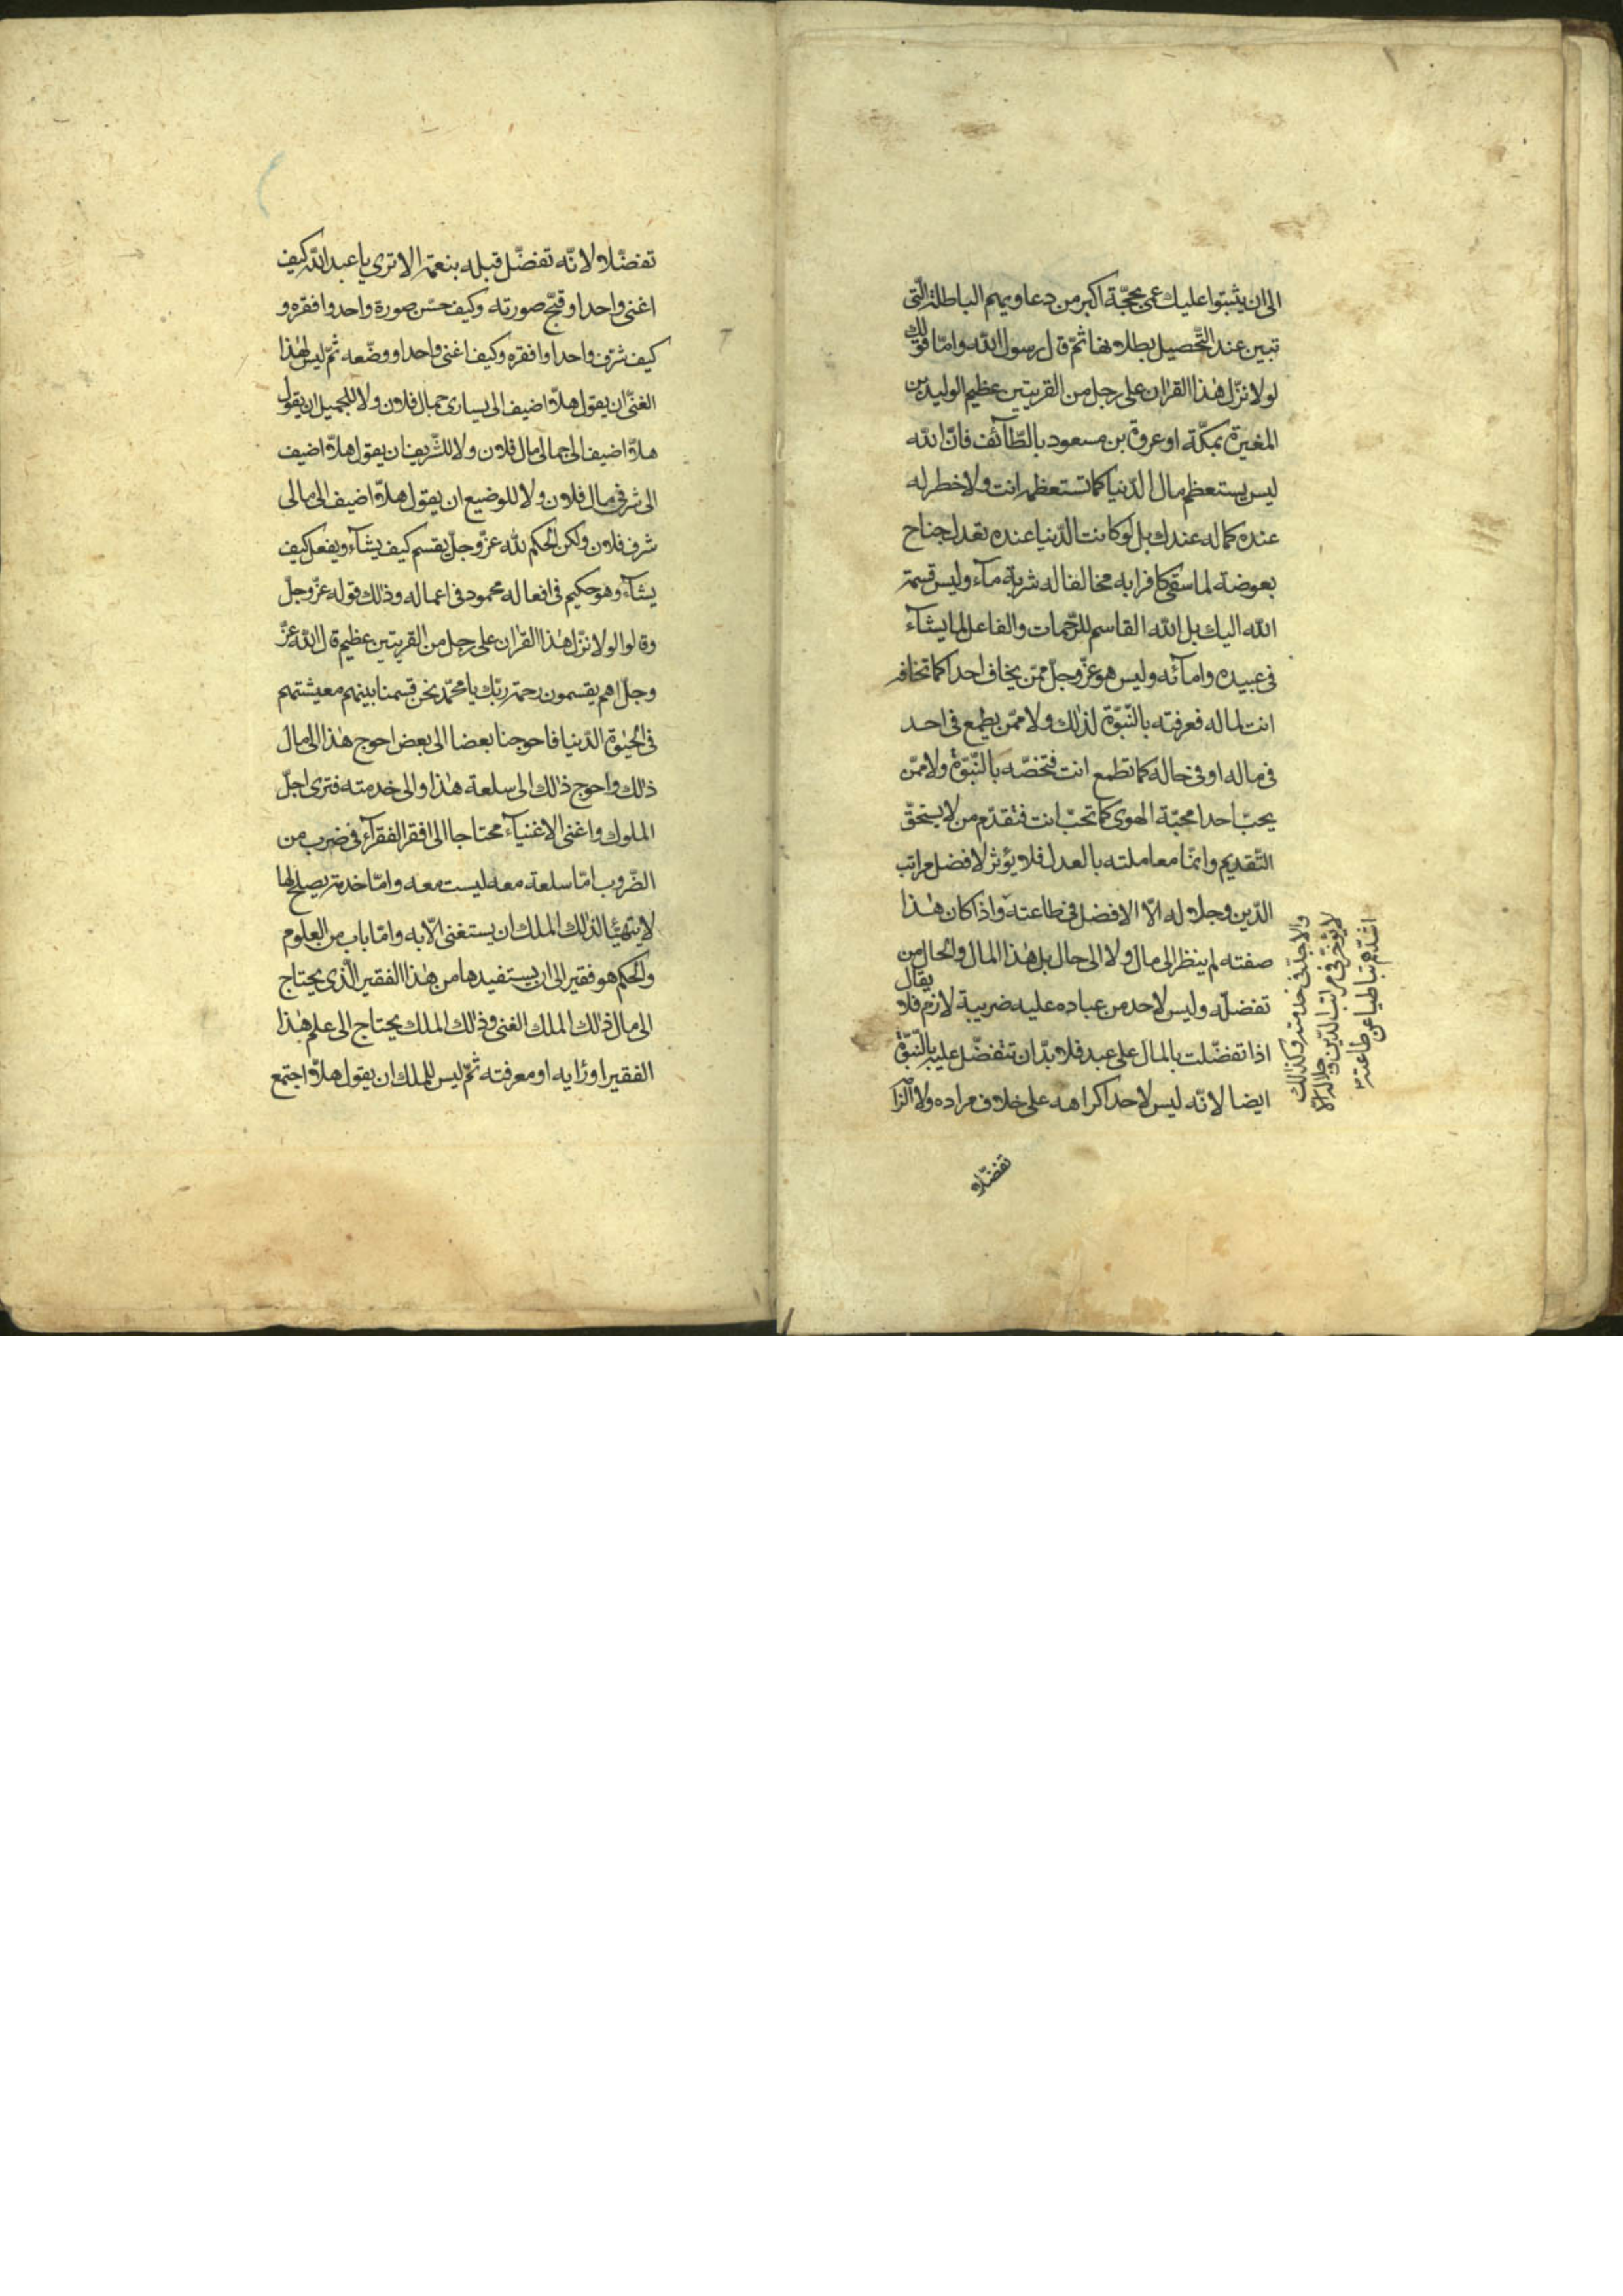 الى ان يثبتوا عليك عمى بحجّة اكبر من دعاويهم الباطلة الّتى
تبين عند التّحصيل بطلانها ثمّ قال رسول الله وامّا قولك
لولا نزّل هذا القران على رجل من القريتين عظيم الوليد بن
المغيرة بمكّة او عروة بن مسعود بالطّآئف فانّ الله
ليس يستعظم مال الدّنيا كما تستعظمه انت ولا خطر له
عنده كما له عندك بل لو كانت الدّنيا عنده تعدل جناح
بعوضة لما سقى كافرا به مخالفا له شربة مآء وليس قسمة
الله اليك بل الله القاسم للرّحمات والفاعل لما يشآء
فى عبيده وامآئه وليس هو عزّ وجلّ ممّن يخاف احدا كما تخافه
انت لماله فعرفته بالنّبوّة لذلك ولا ممّن يطمع فى احد
فى ماله او فى حاله كما تطمع انت فتخصّه بالنّبوّة ولا ممّن
يحبّ احدا محبّة الهوى كما تحبّ انت فتقدّم من لا يستحقّ
التّقديم وانّما معاملته بالعدل فلا يؤثر لافضل مراتب
الدّين وجلاله الّا الافضل فى طاعته واذا كان هذا
صفته لم ينظر الى مال ولا الى حال بل هذا المال والحال من
تفضلّه وليس لاحد من عباده عليه ضريبة لازم فلا يقال
اذا تفضّلت بالمال على عبد فلا بدّ ان تتفضّل عليه بالنّبوّة
ايضا لانّه ليس لاحد اكراهه على خلاف مراده ولا الزا
والاجدّ فى خدمته وكذلك
لا يؤخّر فى مراتب الدّين وجلاله الّا
اشدّهم تباطيا عن طاعته
تفضّلا
تفضّلا لانّه تفضّل قبله بنعمة الا ترى يا عبد الله كيف
اغنى واحدا وقبّح صورته وكيف حسّن صورة واحد وافقره و
كيف شرّف واحدا وافقره وكيف اغنى واحدا ووضّعه ثمّ ليس لهذا
الغنىّ ان يقول هلّا اضيف الى يسارى جمال فلان ولا للجميل ان يقول
هلّا اضيف الى جمالى مال فلان ولا للشّريف ان يقول هلّا اضيف
الى شرفى مال فلان ولا للوضيع ان يقول هلّا اضيف الى مالى
شرف فلان ولكن الحكم لله عزّ وجلّ يقسم كيف يشآء ويفعل كيف
يشآء وهو حكيم فى افعاله محمود فى اعماله وذلك قوله عزّ وجلّ
وقالوا لولا نزّل هذا القران على رجل من القريتين عظيم قال الله عزّ
وجلّ اهم يقسمون رحمة ربّك يا محمّد نحن قسمنا بينهم معيشتهم
فى الحيوة الدّنيا فاحوجنا بعضا الى بعض احوج هذا الى مال
ذلك واحوج ذلك الى سلعة هذا والى خدمته فترى اجلّ
الملوك واغنى الاغنيآء محتاجا الى افقر الفقرآء فى ضرب من
الضّروب امّا سلعة معه ليست معه وامّا خدمة يصلح لها
لا يتهيّا لذلك الملك ان يستغنى الّا به وامّا باب من العلوم
والحكم هو فقير الى ان يستفيدها من هذا الفقير الّذى يحتاج
الى مال ذلك الملك الغنى وذلك الملك يحتاج الى علم هذا
الفقير او رايه او معرفته ثمّ ليس للملك ان يقول هلّا اجتمع